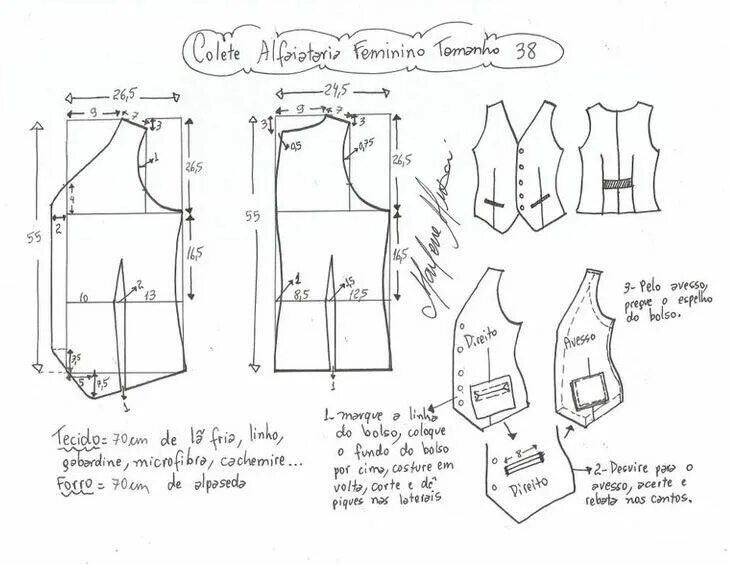 Colete Alfaiataria Feminino Tamanho 38
26,5
9
7
3
1
26,5
55
4
2
16,5
2
10
13
3,5
5
7,5
1
24,5
9
7
3
3
0,5
0,75
26,5
55
16,5
1
8,5
1,5
12,5
1
Marlene Mukai
Direito
Avesso
3- Pelo avesso,
pregue o espelho
do bolso.
1- marque a linha
do bolso, coloque
o fundo do bolso
por cima, costure em
volta, corte e dê
piques nas laterais
8
Direito
2- Desvire para o
avesso, acerte e
rebata nos cantos.
Tecido = 70cm de lã fria, linho,
gabardine, microfibra, cachemire...
Forro = 70cm de alpaseda